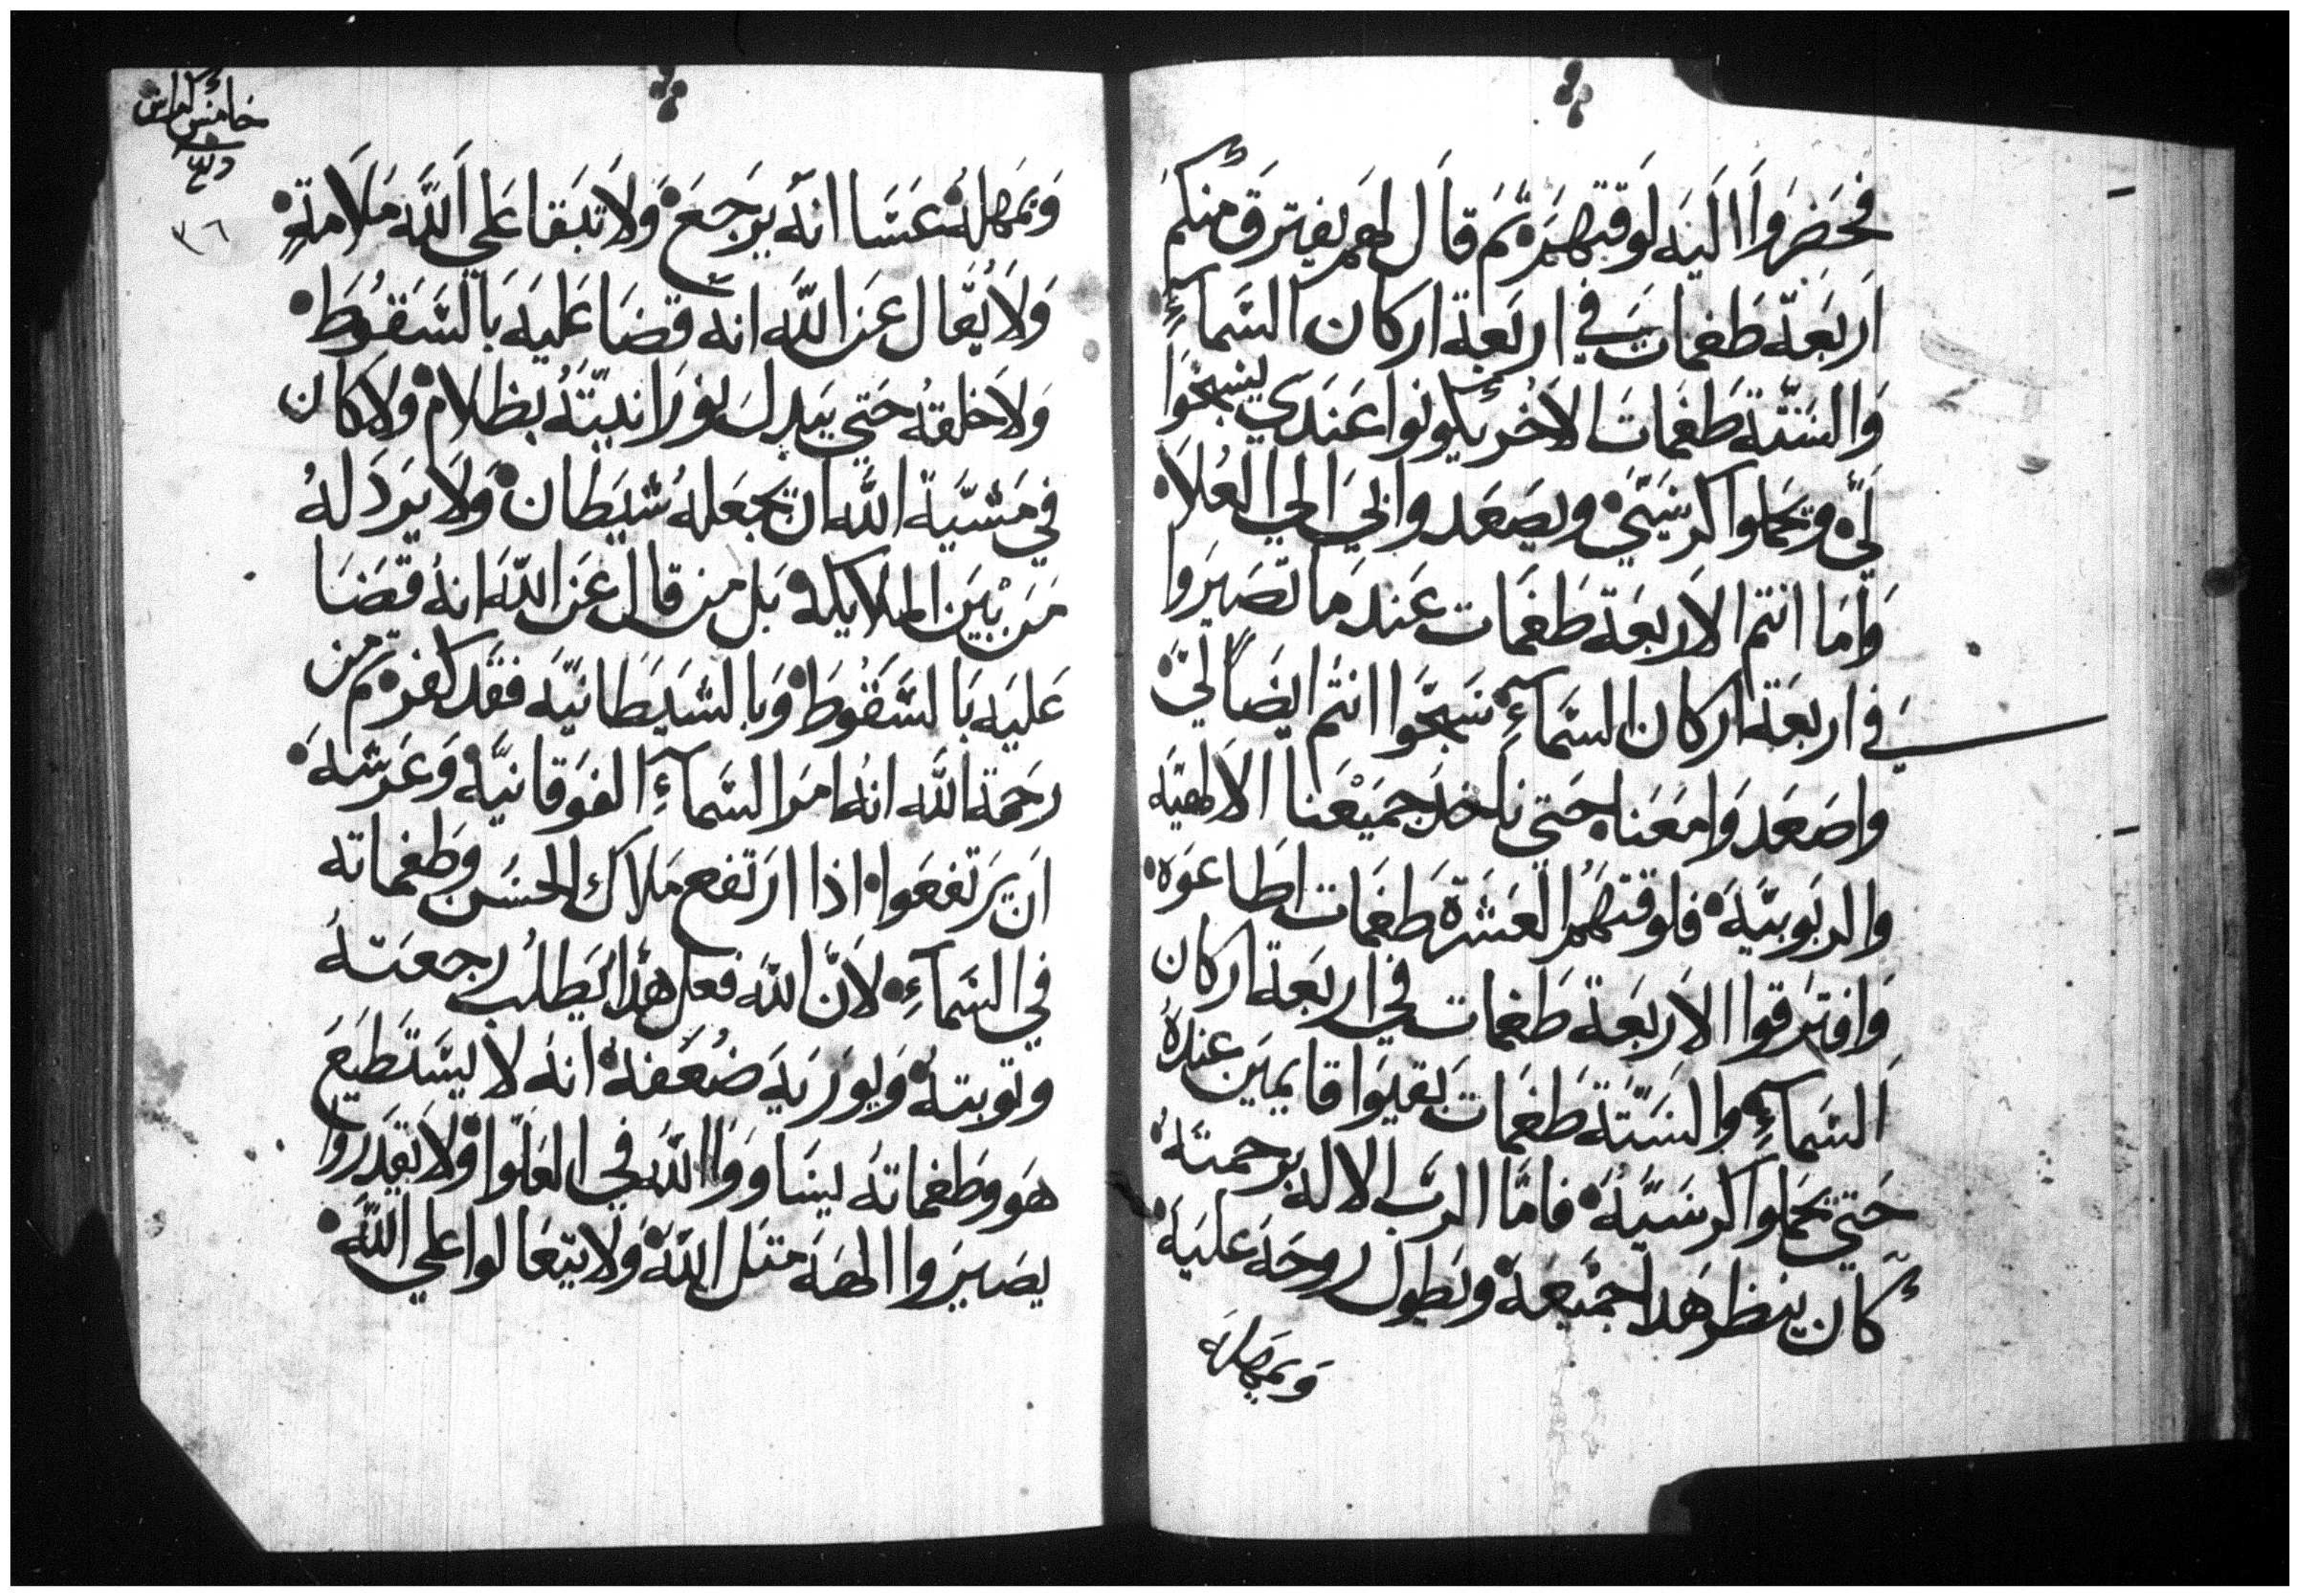 فحَضَروَا اليَه لوَقتهمَ ثمَ قال لهمَ يفترق منكم
اَربَعَة طَغمات في اربَعَة اركان السَّمآءِ
وَالسَتّة طَغمَاتَ الاخُر يكونوا عَندَي يسَبحَوا
ليَّ وَيحَملوا كرسَيّي وَيصَعَدوا بيَ الي العُلاَ
وَأمَا انتم الاَربَعَة طَغمَات عَندَ ما تصَيرَوا
في اربَعَة اركان السَمآءِ سَبحَّوا انتم ايضَاً ليَّ
وَاصَعَدوَا معَنا حَتي ناخدَ جميَعنا الالهيَة
والربَوبيَّة فلوقتهمُ العَشرة طَغمَات اطَاعَوَه
وَافترَقوا الاَربَعَة طَغمات في اربَعَة اركان
السَمآءِ والسَتّة طَغمَات بَقيَوا قايميَن عندهُ
حَتي يحَملوا كرسَيّهُ فامّا الربّ الاله برحمتهُ
كان ينظر هَدا جميَعَهَ ويَطول روحَه عليَهَ
وَيمهلهَ
خامس كراس
دير
٣٦
وَيمَهلهُ عَسَا انهَ يرَجَعَ وَلاَ تبَقا عَلي اَللَّه مَلاَمة
وَلاَ يُقَال عَن اللَّه انه قَضَا عَليَه بَالسَقوُطَ
وَلاَ خلقهُ حَتي يبَدل نورَانديّتهُ بظَلامَ وَلا كان
في مَشيّة اللَّه ان يجعَلهُ شيَطَان وَلاَ يرَدَلهُ
مَن بَيَن الملايكة بَل من قال عَن اللّهَ انهُ قَضَا
عَليَه بَالسَقوُطَ وَبالشيَطَانيّة فقَد كفر ثم من
رحَمَة اللَّه انهُ امَر السَّمآءِ الفوَقانيَّة وَعَرَشهَ
اَن يرَتفعَوا اذا ارَتفع مَلاك الحسَن وَطَغماته
في السَمآءِ لاَنّ اللّه فعل هَدا يَطلب رجعَتهُ
وتوبتهُ وَيورَيهَ ضُعَفهُ انهَ لاَ يسَتطَيَعَ
هوَ وَطَغماتهُ يسَاووَا اللّهَ في العَلَوا وَلاَ يقَدَروا
يصَيرَوا الههَ متل اللّهَ وَلاَ يتعَالوا عَلي اللّهَ